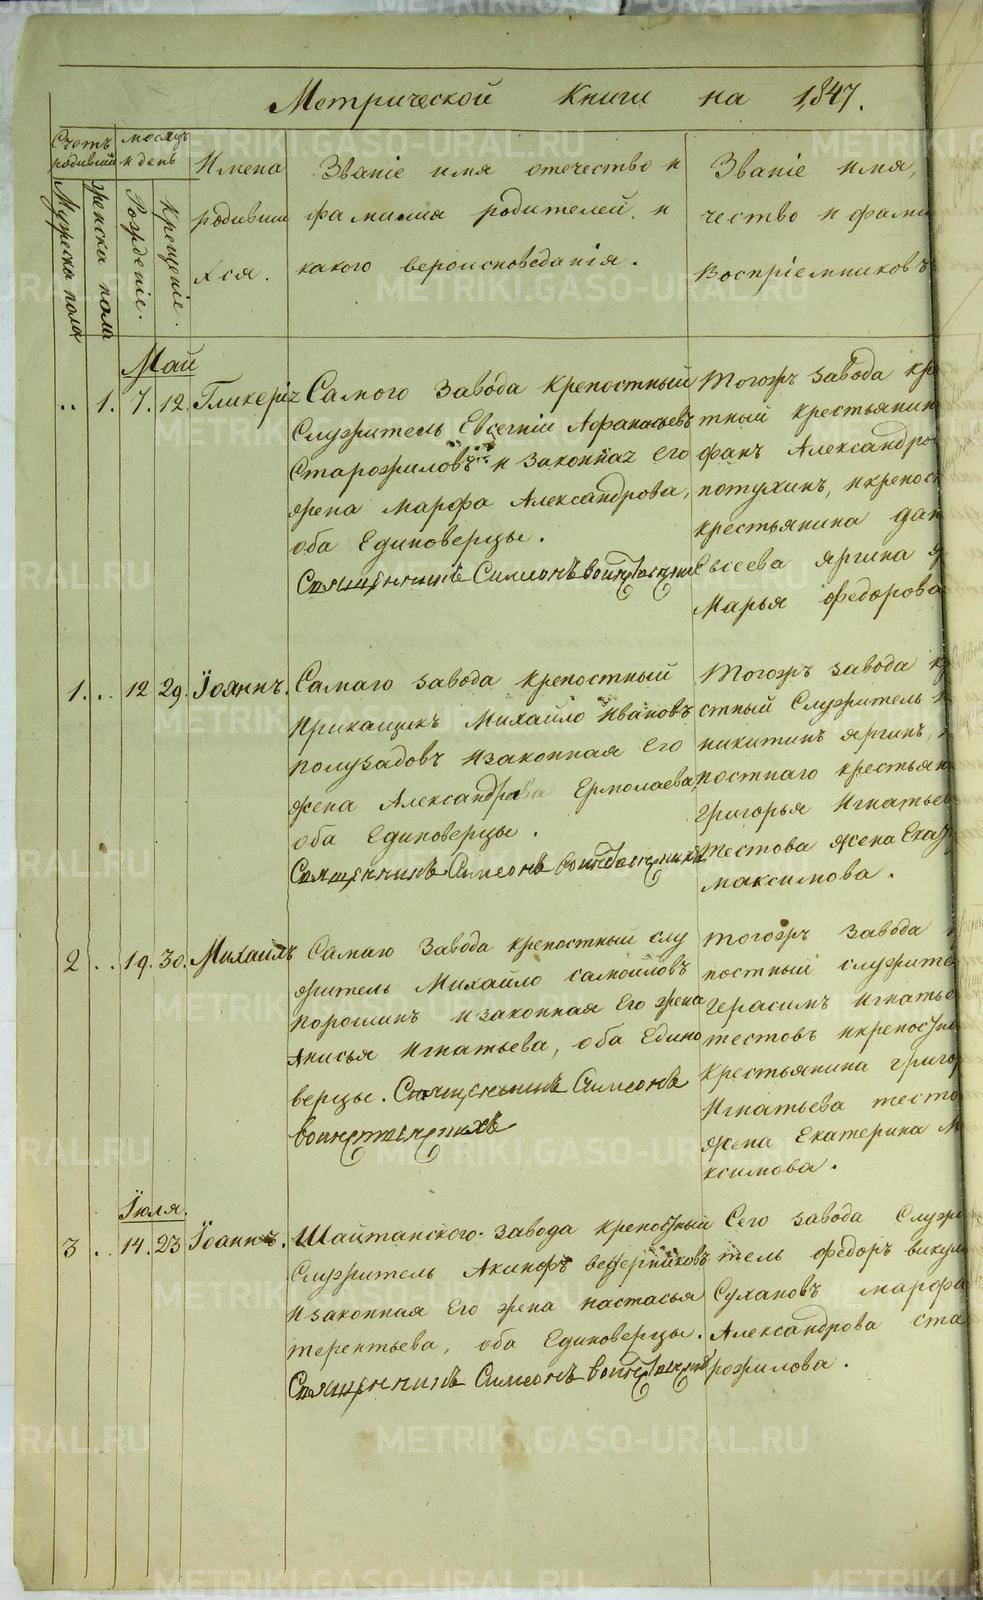 Метрической Книги на 1847.
Счетъ родивший
месяцъ и день
Имена родивши хся.
Званіе имя отечество и фамилия родителей. и какого вероисповеданія.
Званіе имя, чество и фами восприемниковъ
Мужеска пола
женска пола
Рожденіе.
Крещеніе.
Май
.. 1. 7. 12. Гликерія
Самого завода крепостный
Служитель Евсегній Афанасьевъ
Старожиловъ и законная его
жена Марфа Александрова,
оба Единоверцы.
Священникъ Симеонъ
тогожъ завода кре
тный крестьянин
фанъ Александро
потухинъ, икрепост
крестьянина дан
Евсеева яргина ж
Марья федорова
1. .. 12 29. Іоаннъ.
Самаго завода крепостный
Прикащикъ Михайло Ивановъ
полузадовъ изаконная его
жена Александрава Ермолаева,
оба Единоверцы.
Священникъ Симеонъ
тогожъ завода кр
стный Служитель
никитинъ яргинъ,
постнаго крестьян
григорья Игнатьев
тестова жена Ека
максимова.
2 .. 19. 30. Михаилъ
Самаго завода крепостный слу
житель Михайло самойловъ
порошинъ изаконная его жена
Анисья Игнатьева, оба Едино
верцы. Священникъ Симеонъ
тогожъ завода
постный служите
герасимъ Игнатье
тестовъ икрепостн
крестьянина григор
Игнатьева тесто
жена Екатерина М
ксимова.
Іюля.
3 .. 14. 23 Іоаннъ.
Шайтанского завода крепостный
Служитель Акинфъ
изаконная его жена настасья
терентьева, оба Единоверцы.
Священникъ Симеонъ
Сего завода Служи
тель федоръ викул
Сухановъ марфа
Александрова ста
рожилова.
METRIKI.GASO-URAL.RU